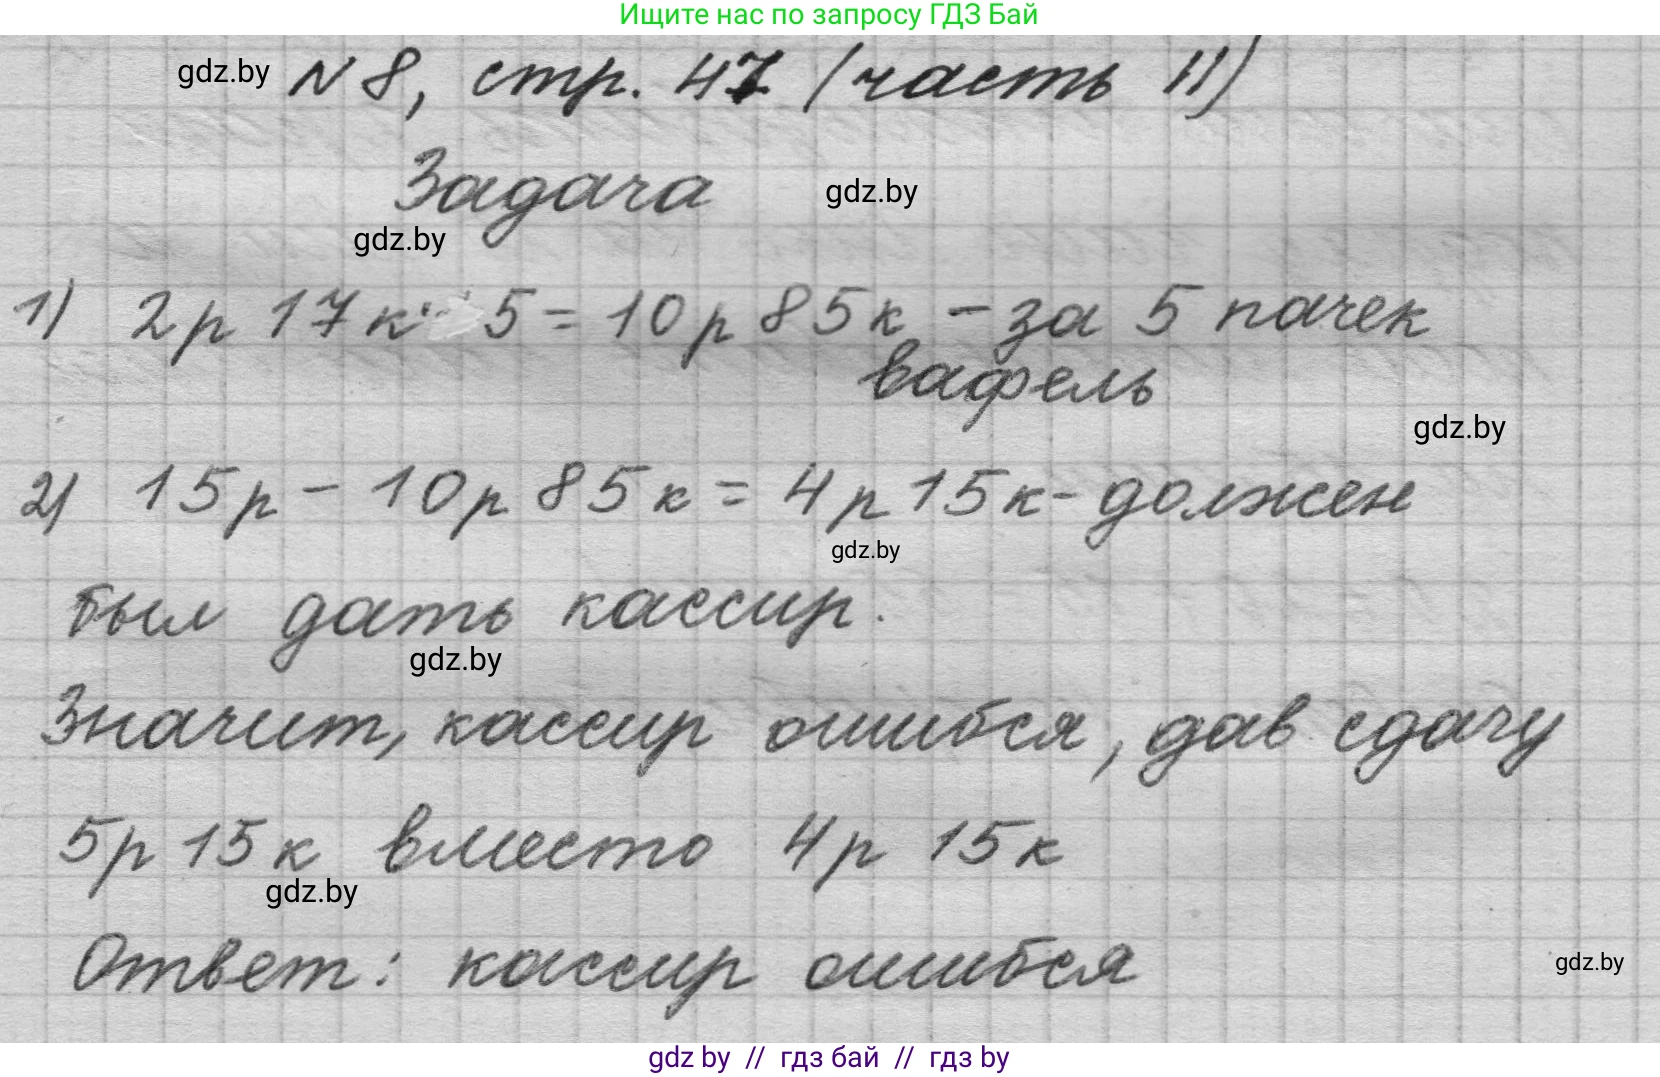 Ищите нас по запросу ГДЗ Бай
gdz.by N 8, стр. 47 (часть II)
Задача gdz.by
gdz.by
1) 2р 17к · 5 = 10р 85к - за 5 пачек
вафель
gdz.by
2) 15р - 10р 85к = 4р 15к - должен
gdz.by
был дать кассир.
gdz.by
Значит, кассир ошибся, дав сдачу
5р 15к вместо 4р 15к
gdz.by
Ответ: кассир ошибся gdz.by
gdz by // гдз бай // гдз by